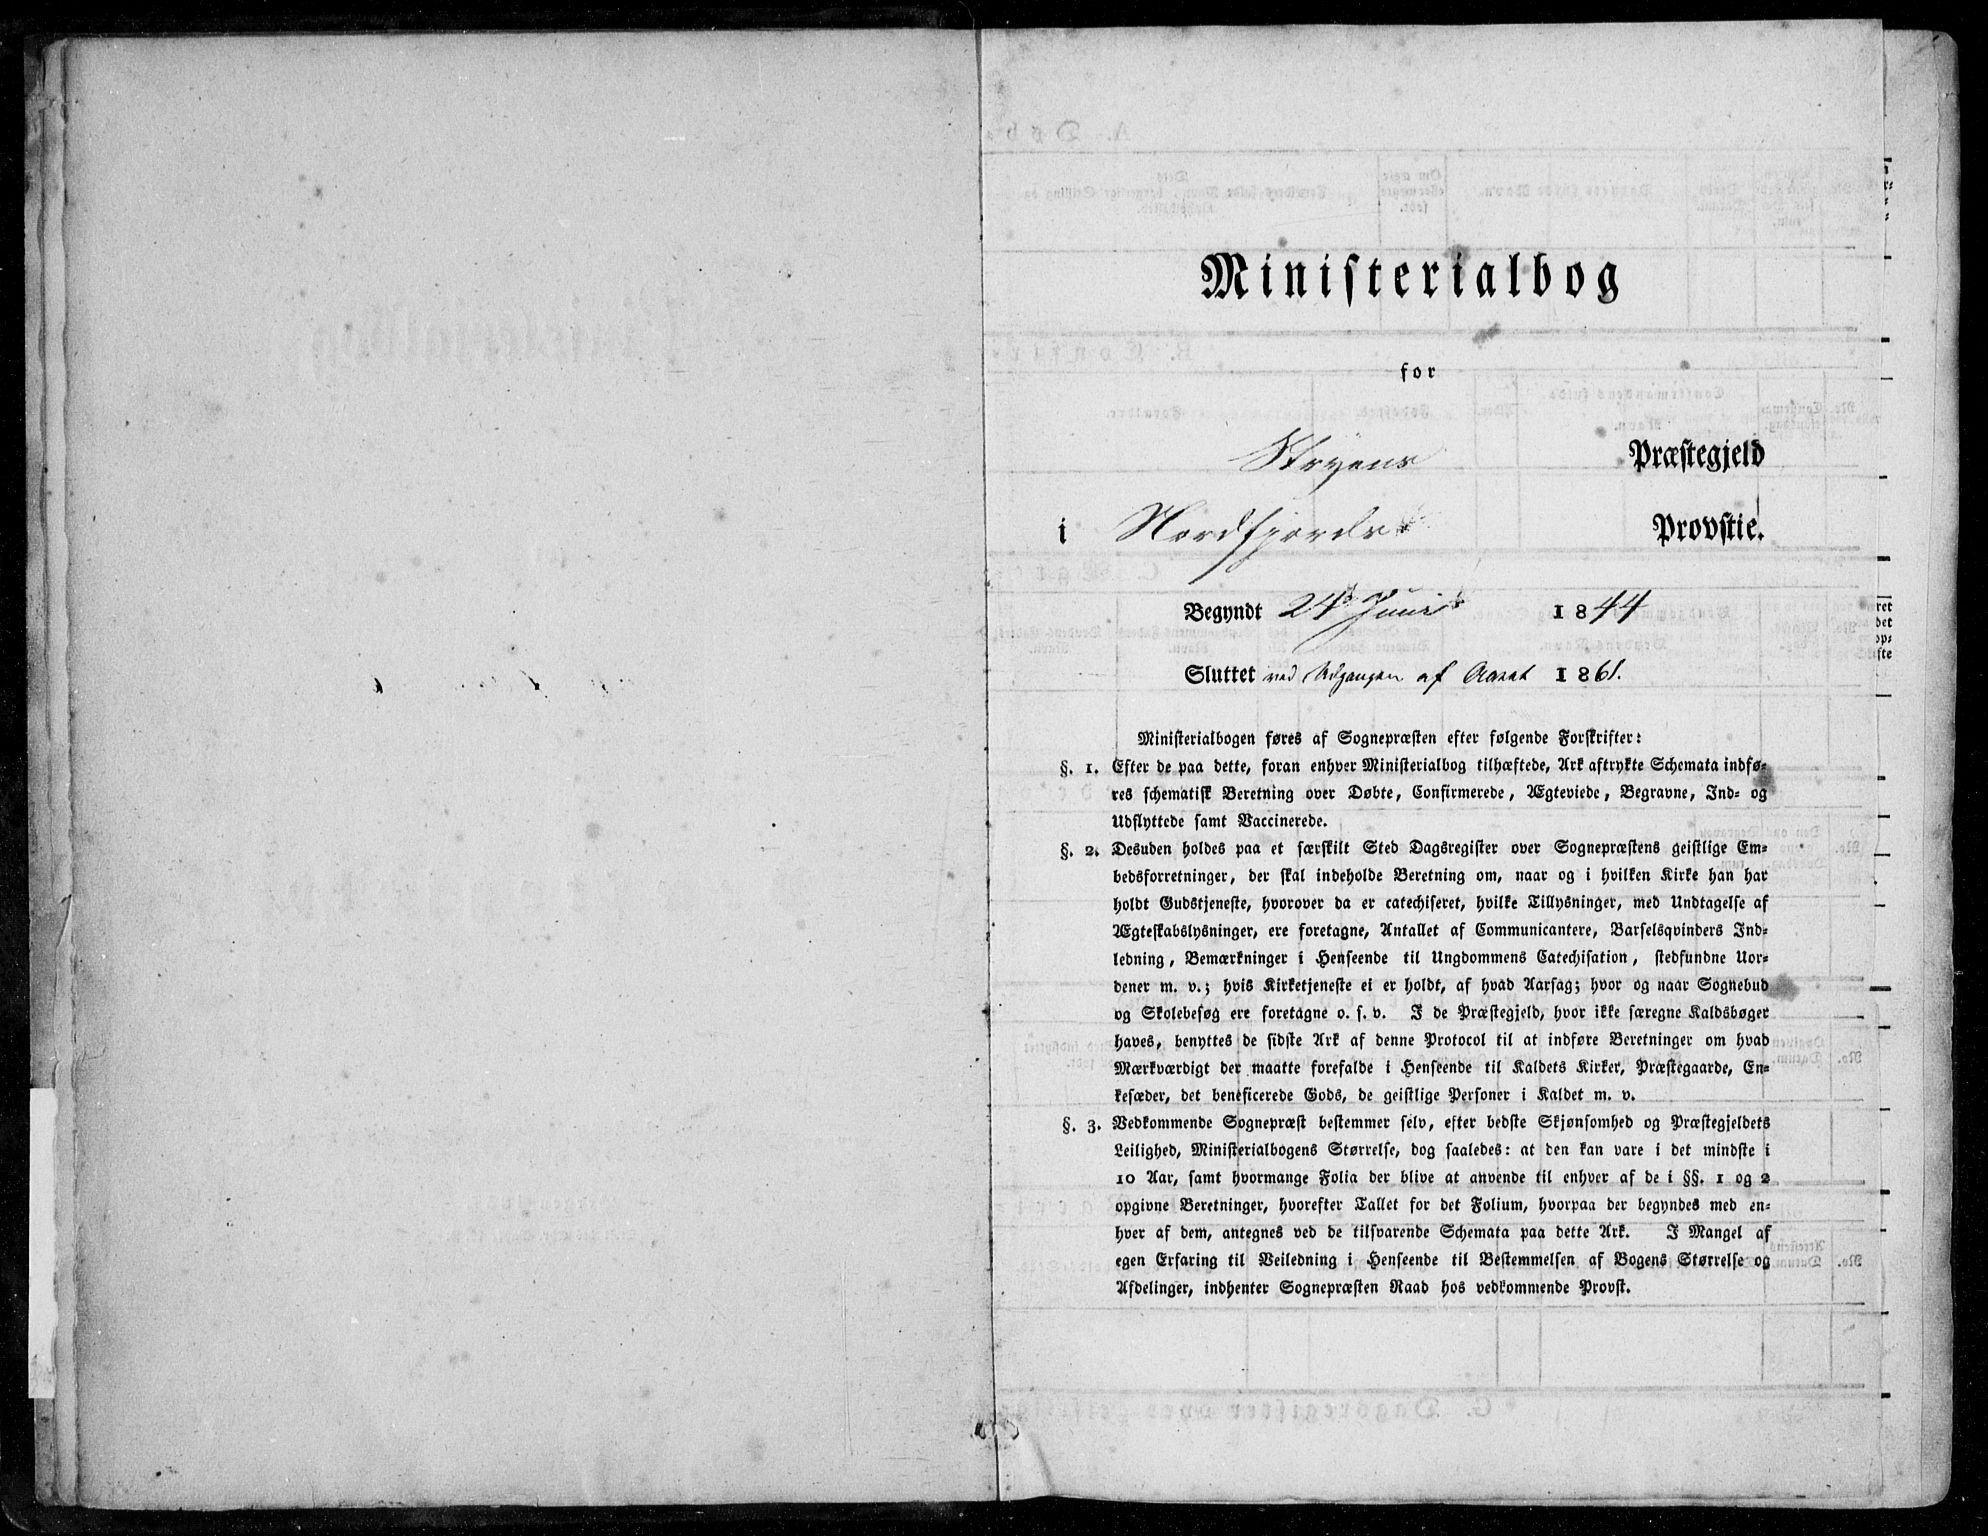 Ministerialbog
for
Stryens Præstegjeld
i Nordfjords Provstie.
Begyndt 24de Juni 1844
Sluttet ved Udgangen af Aaret 1861.
Ministerialbogen føres af Sognepræsten efter følgende Forskrifter:
§. 1. Efter de paa dette, foran enhver Ministerialbog tilhæftede, Ark aftrykte Schemata indfø-
res schematisk Beretning over Døbte, Confirmerede, Ægteviede, Begravne, Ind- og
Udflyttede samt Vaccinerede.
§. 2. Desuden holdes paa et særskilt Sted Dagsregister over Sognepræstens geistlige Em-
bedsforretninger, der skal indeholde Beretning om, naar og i hvilken Kirke han har
holdt Gudstjeneste, hvorover da er catechiseret, hvilke Tillysninger, med Undtagelse af
Ægteskabslysninger, ere foretagne, Antallet af Communicantere, Barselqvinders Ind-
ledning, Bemærkninger i Henseende til Ungdommens Catechisation, stedfundne Uor-
dener m. v.; hvis Kirketjeneste ei er holdt, af hvad Aarsag; hvor og naar Sognebud
og Skolebesøg ere foretagne o. s. v. I de Præstegjeld, hvor ikke særegne Kaldsbøger
haves, benyttes de sidste Ark af denne Protocol til at indføre Beretninger om hvad
Mærkværdigt der maatte forefalde i Henseende til Kaldets Kirker, Præstegaarde, En-
kesæder, det beneficerede Gods, de geistlige Personer i Kaldet m. v.
§. 3. Vedkommende Sognepræst bestemmer selv, efter bedste Skjønsomhed og Præstegjeldets
Leilighed, Ministerialbogens Størrelse, dog saaledes: at den kan vare i det mindste i
10 Aar, samt hvormange Folia der blive at anvende til enhver af de i §§. 1 og 2
opgivne Beretninger, hvorefter Tallet for det Folium, hvorpaa der begyndes med en-
hver af dem, antegnes ved de tilsvarende Schemata paa dette Ark. I Mangel af
egen Erfaring til Veiledning i Henseende til Bestemmelsen af Bogens Størrelse og
Afdelinger, indhenter Sognepræsten Raad hos vedkommende Provst.